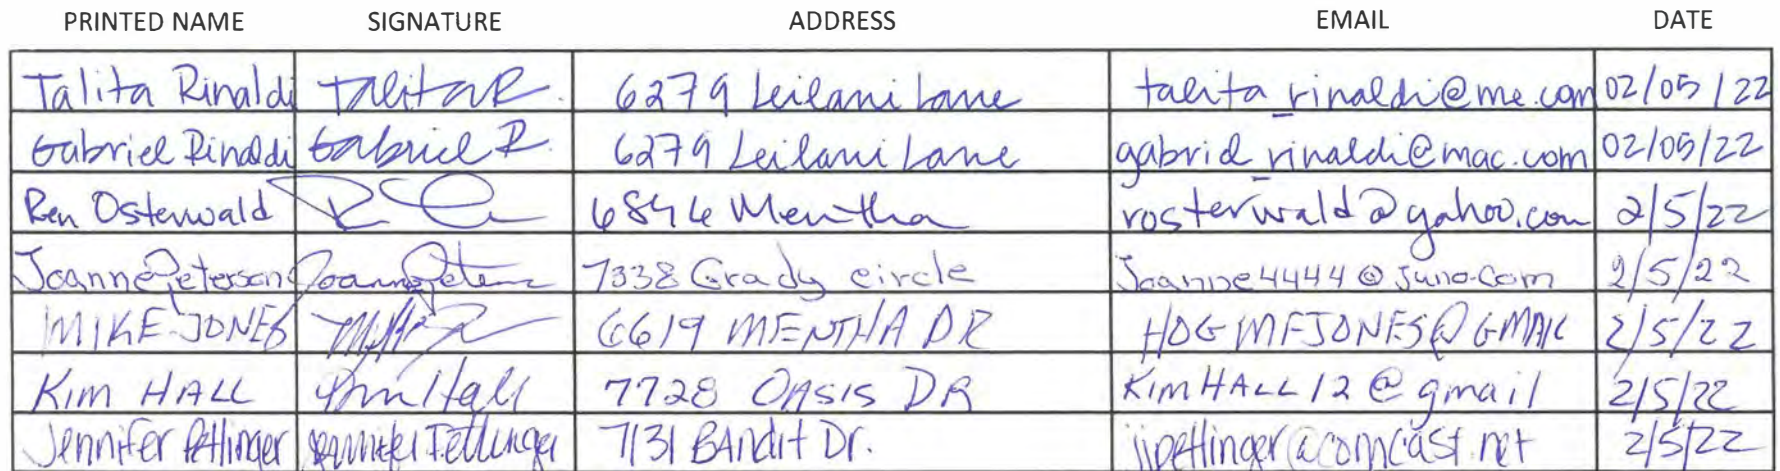 PRINTED NAME SIGNATURE ADDRESS EMAIL DATE
Talita Rinaldi Talita R. 6279 Leilani Lane talita_rinaldi@me.com 02/05/22
Gabriel Rinaldi Gabriel R. 6279 Leilani Lane gabriel_rinaldi@mac.com 02/05/22
Ren Osterwald 6846 Mentha rosterwald@yahoo.com 2/5/22
Joanne Peterson Joanne Peterson 7338 Grady circle Joanne4444@juno.com 2/5/22
MIKE JONES 6619 MENTHA DR HOGMFJONES@GMAIL 2/5/22
KIM HALL Kim Hall 7728 OASIS DR KIMHALL12@gmail 2/5/22
Jennifer Pettinger Jennifer Pettinger 7131 BAndit Dr. jjpettinger@comcast.net 2/5/22